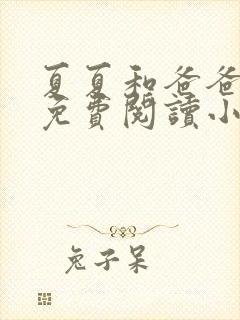 夏夏和爸爸
免費閱讀小
兔子呆